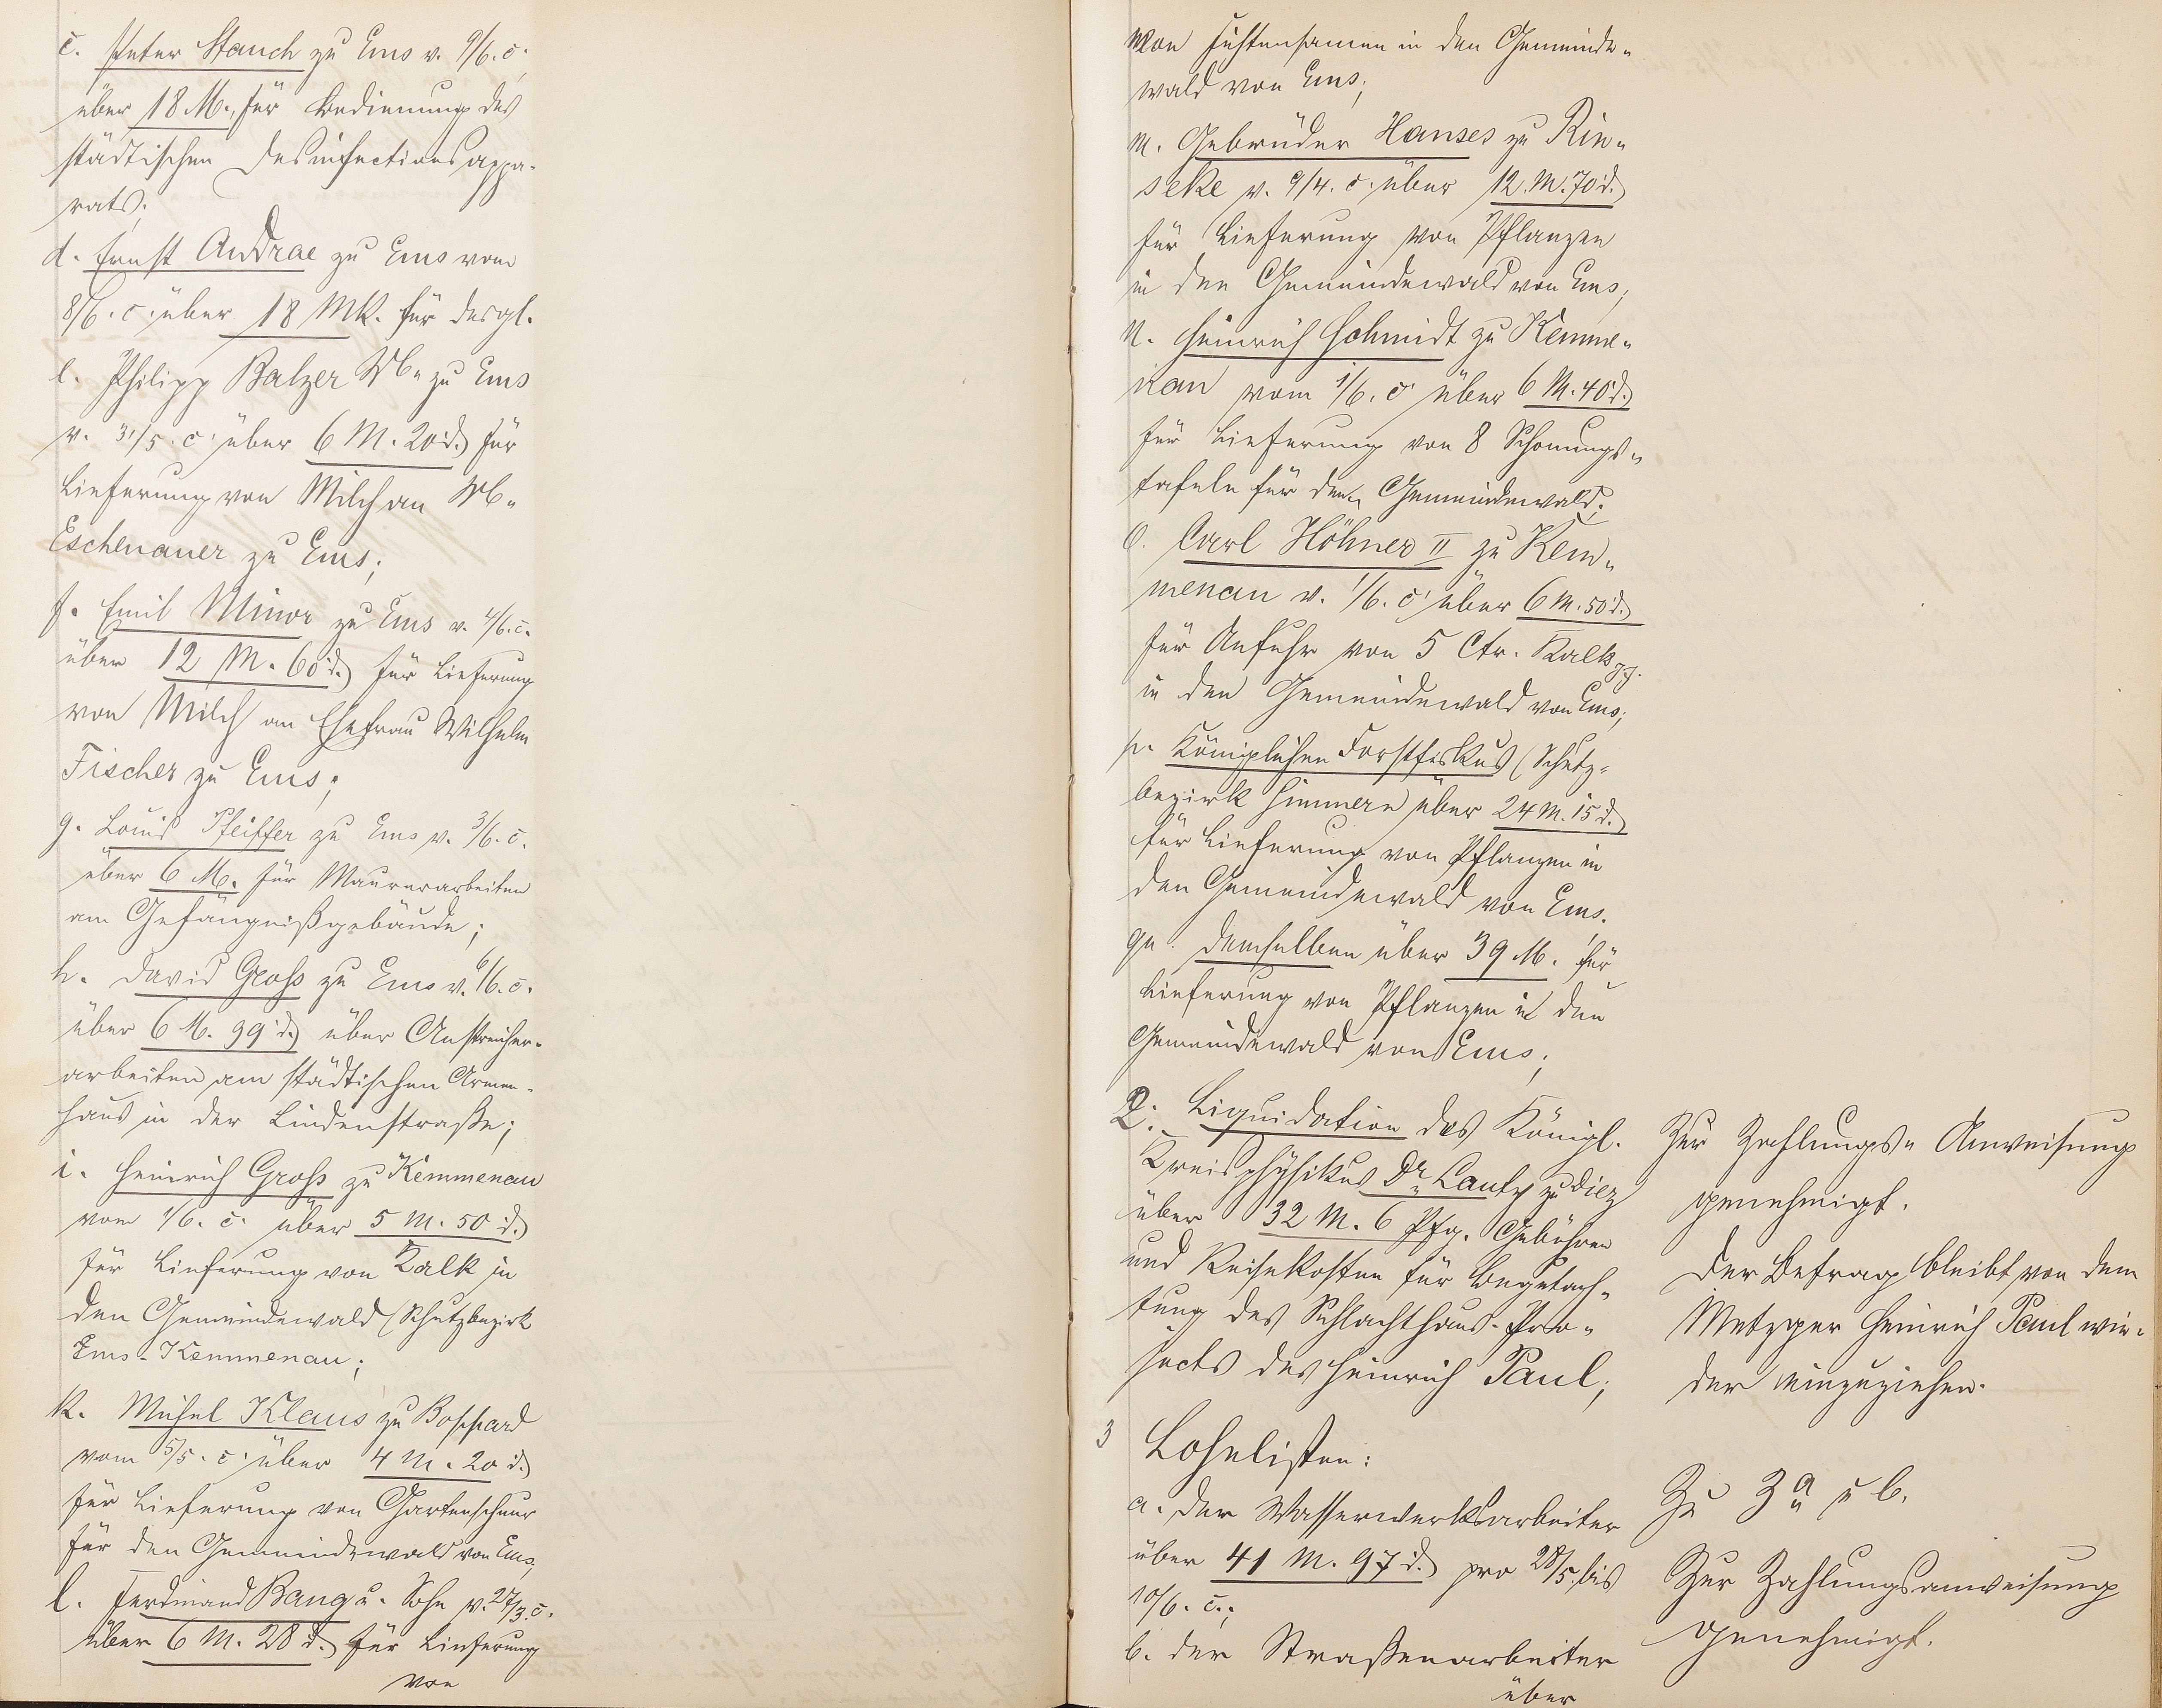 c. Peter Stauch zu Ems v. 9/6. c.
über 18 M. für Bedienung des
städtischen Desinfectionsappa-
rats;
d. Ernst Andrae zu Ems vom
8/6. c. über 18 Mk. für desgl.
e. Philipp Balzer Wb. zu Ems
v. 31/5. c. über 6 M. 20 d. für
Lieferung von Milch an Wb.
Eschenauer zu Ems;
f. Emil Minor zu Ems v. 4/6. c.
über 12 M. 60 d. für Lieferung
von Milch an Ehefrau Wilhelm
Fischer zu Ems;
g. Louis Pfeiffer zu Ems v. 3/6. c.
über 6 M. für Maurerarbeiten
am Gefängnißgebäude;
h. David Gross zu Ems v. 6/6. c.
über 6 M. 99 d. über Anstreicher-
arbeiten am städtischen Armen-
haus in der Lindenstraße;
i. Heinrich Gross zu Kemmenau
vom 1/6. c. über 5 M. 50 d.
für Lieferung von Kalk in
den Gemeindewald (Schutzbezirk
Ems-Kemmenau;
k. Michel Klaus zu Boppard
vom 5/5. c. über 4 M. 20 d.
für Lieferung von Gartenschnur
für den Gemeindewald von Ems,
l. Ferdinand Bang u. Sohn v. 27/3. c.
über 6 M. 28 d. für Lieferung
von
von Fichtensamen in den Gemeinde-
wald von Ems;
m. Gebrüder Hanses zu Rin-
seke v. 9/4. c. über 12 M. 70 d.
für Lieferung von Pflanzen
in den Gemeindewald von Ems;
n. Heinrich Schmidt zu Kemme-
nau vom 1/6. c. über 6 M. 40 d.
für Lieferung von 8 Schonungs-
tafeln für den Gemeindewald;
o. Carl Höhner II zu Kem-
menau v. 1/6. c. über 6 M. 50 d.
für Anfuhr von 5 Ctr. Kalk pp.
in den Gemeindewald von Ems;
p. Königlichen Forstfiskus (Schutz-
bezirk Himmern über 24 M. 15 d.
für Lieferung von Pflanzen in
den Gemeindewald von Ems.
q. demselben über 39 M. für
Lieferung von Pflanzen in den
Gemeindewald von Ems;
2. Liquidation des Königl.
Kreisphysikus Dr. Lautz zu Diez
über 32 M. 6 Pfg. Gebühren
und Reisekosten für Begutach-
tung des Schlachthaus-Pro-
jects des Heinrich Paul;
Zur Zahlungs-Anweisung
genehmigt.
Der Betrag bleibt von dem
Metzger Heinrich Paul wie-
der einzuziehen.
3 Lohnlisten:
a. der Wasserwerksarbeiter
über 41 M. 97 d. pro 28/5. bis
10/6. c.;
b. der Straßenarbeiter
über
Zu 3 a u b.
Zur Zahlungsanweisung
genehmigt.